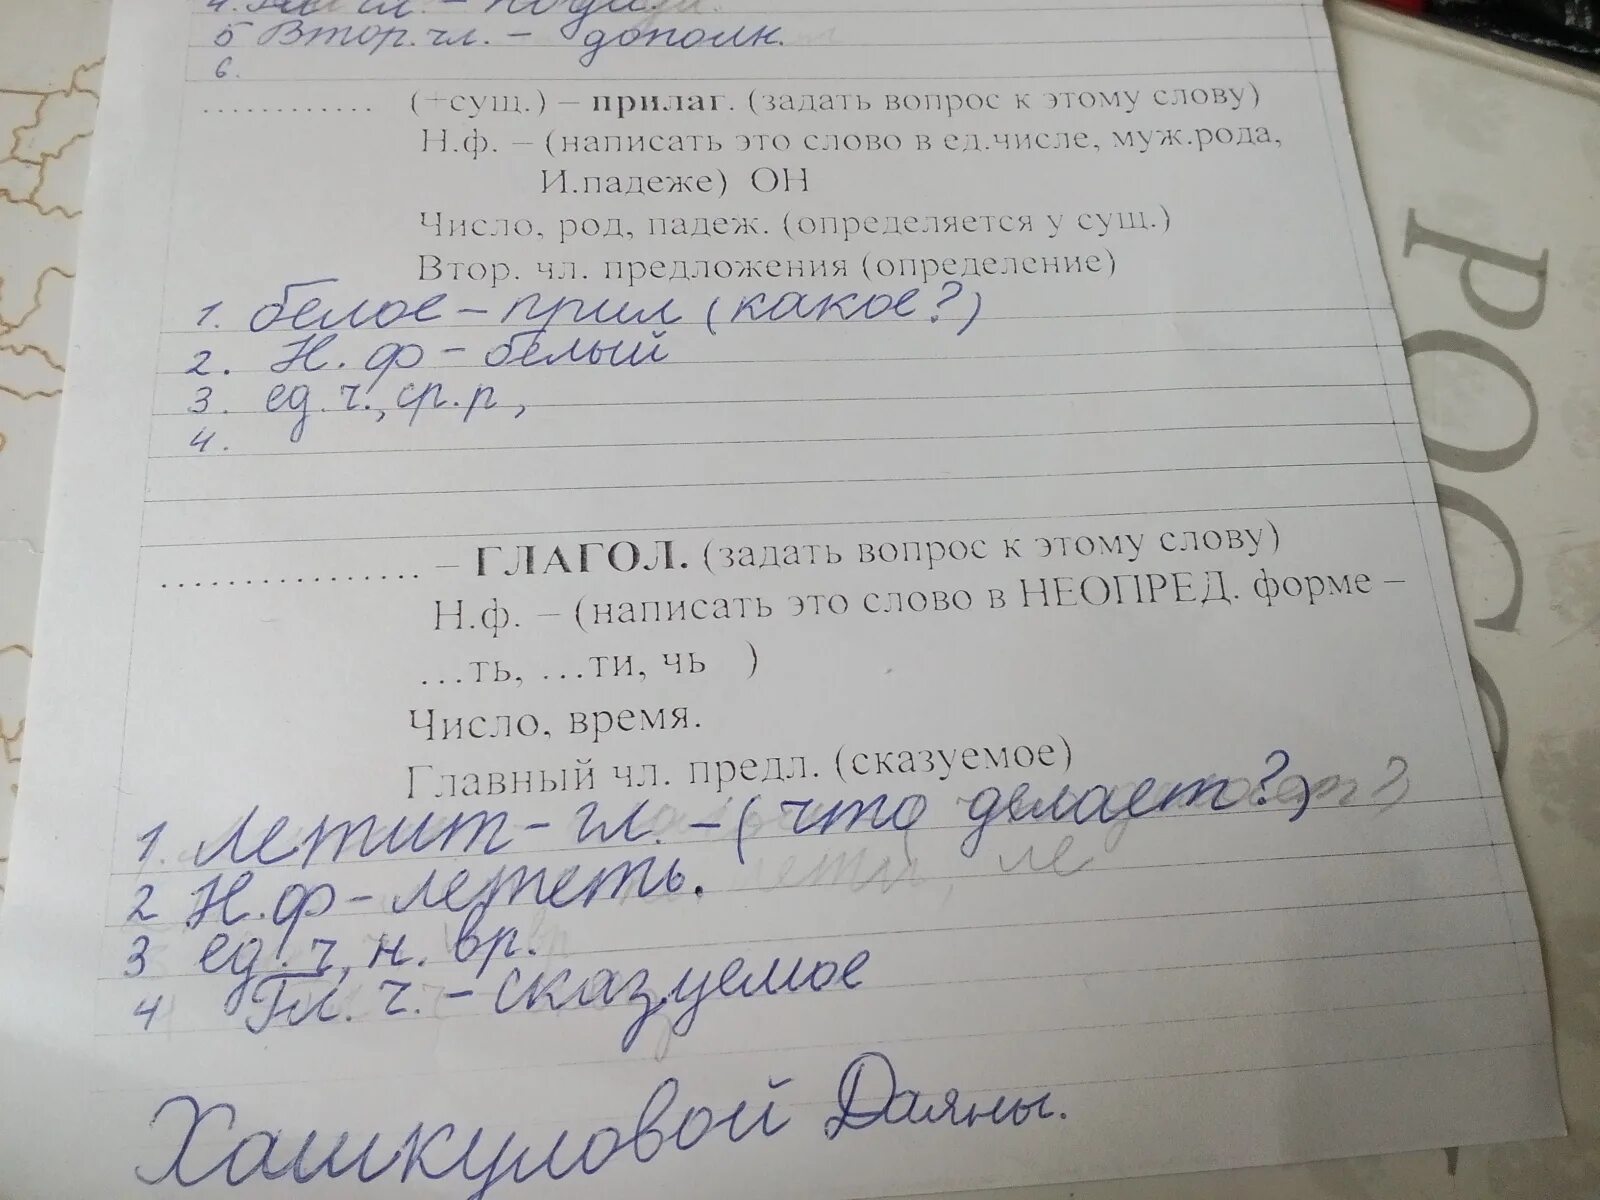 5 Втор. чл. – дополн.
6.
............ (+сущ.) – прилаг. (задать вопрос к этому слову)
Н.ф. – (написать это слово в ед.числе, муж.рода,
И.падеже) ОН
Число, род, падеж. (определяется у сущ.)
Втор. чл. предложения (определение)
1. белое – прил (какое?)
2. Н. ф – белый
3. ед. ч., ср. р,
4.
................ – ГЛАГОЛ. (задать вопрос к этому слову)
Н.ф. – (написать это слово в НЕОПРЕД. форме –
…ть, …ти, чь )
Число, время.
Главный чл. предл. (сказуемое)
1. летит – гл. – (что делает?)
2 Н.ф – лететь.
3 ед. ч, н. вр.
4 Гл. ч. – сказуемое
Хашкуловой Даяны.
РОС